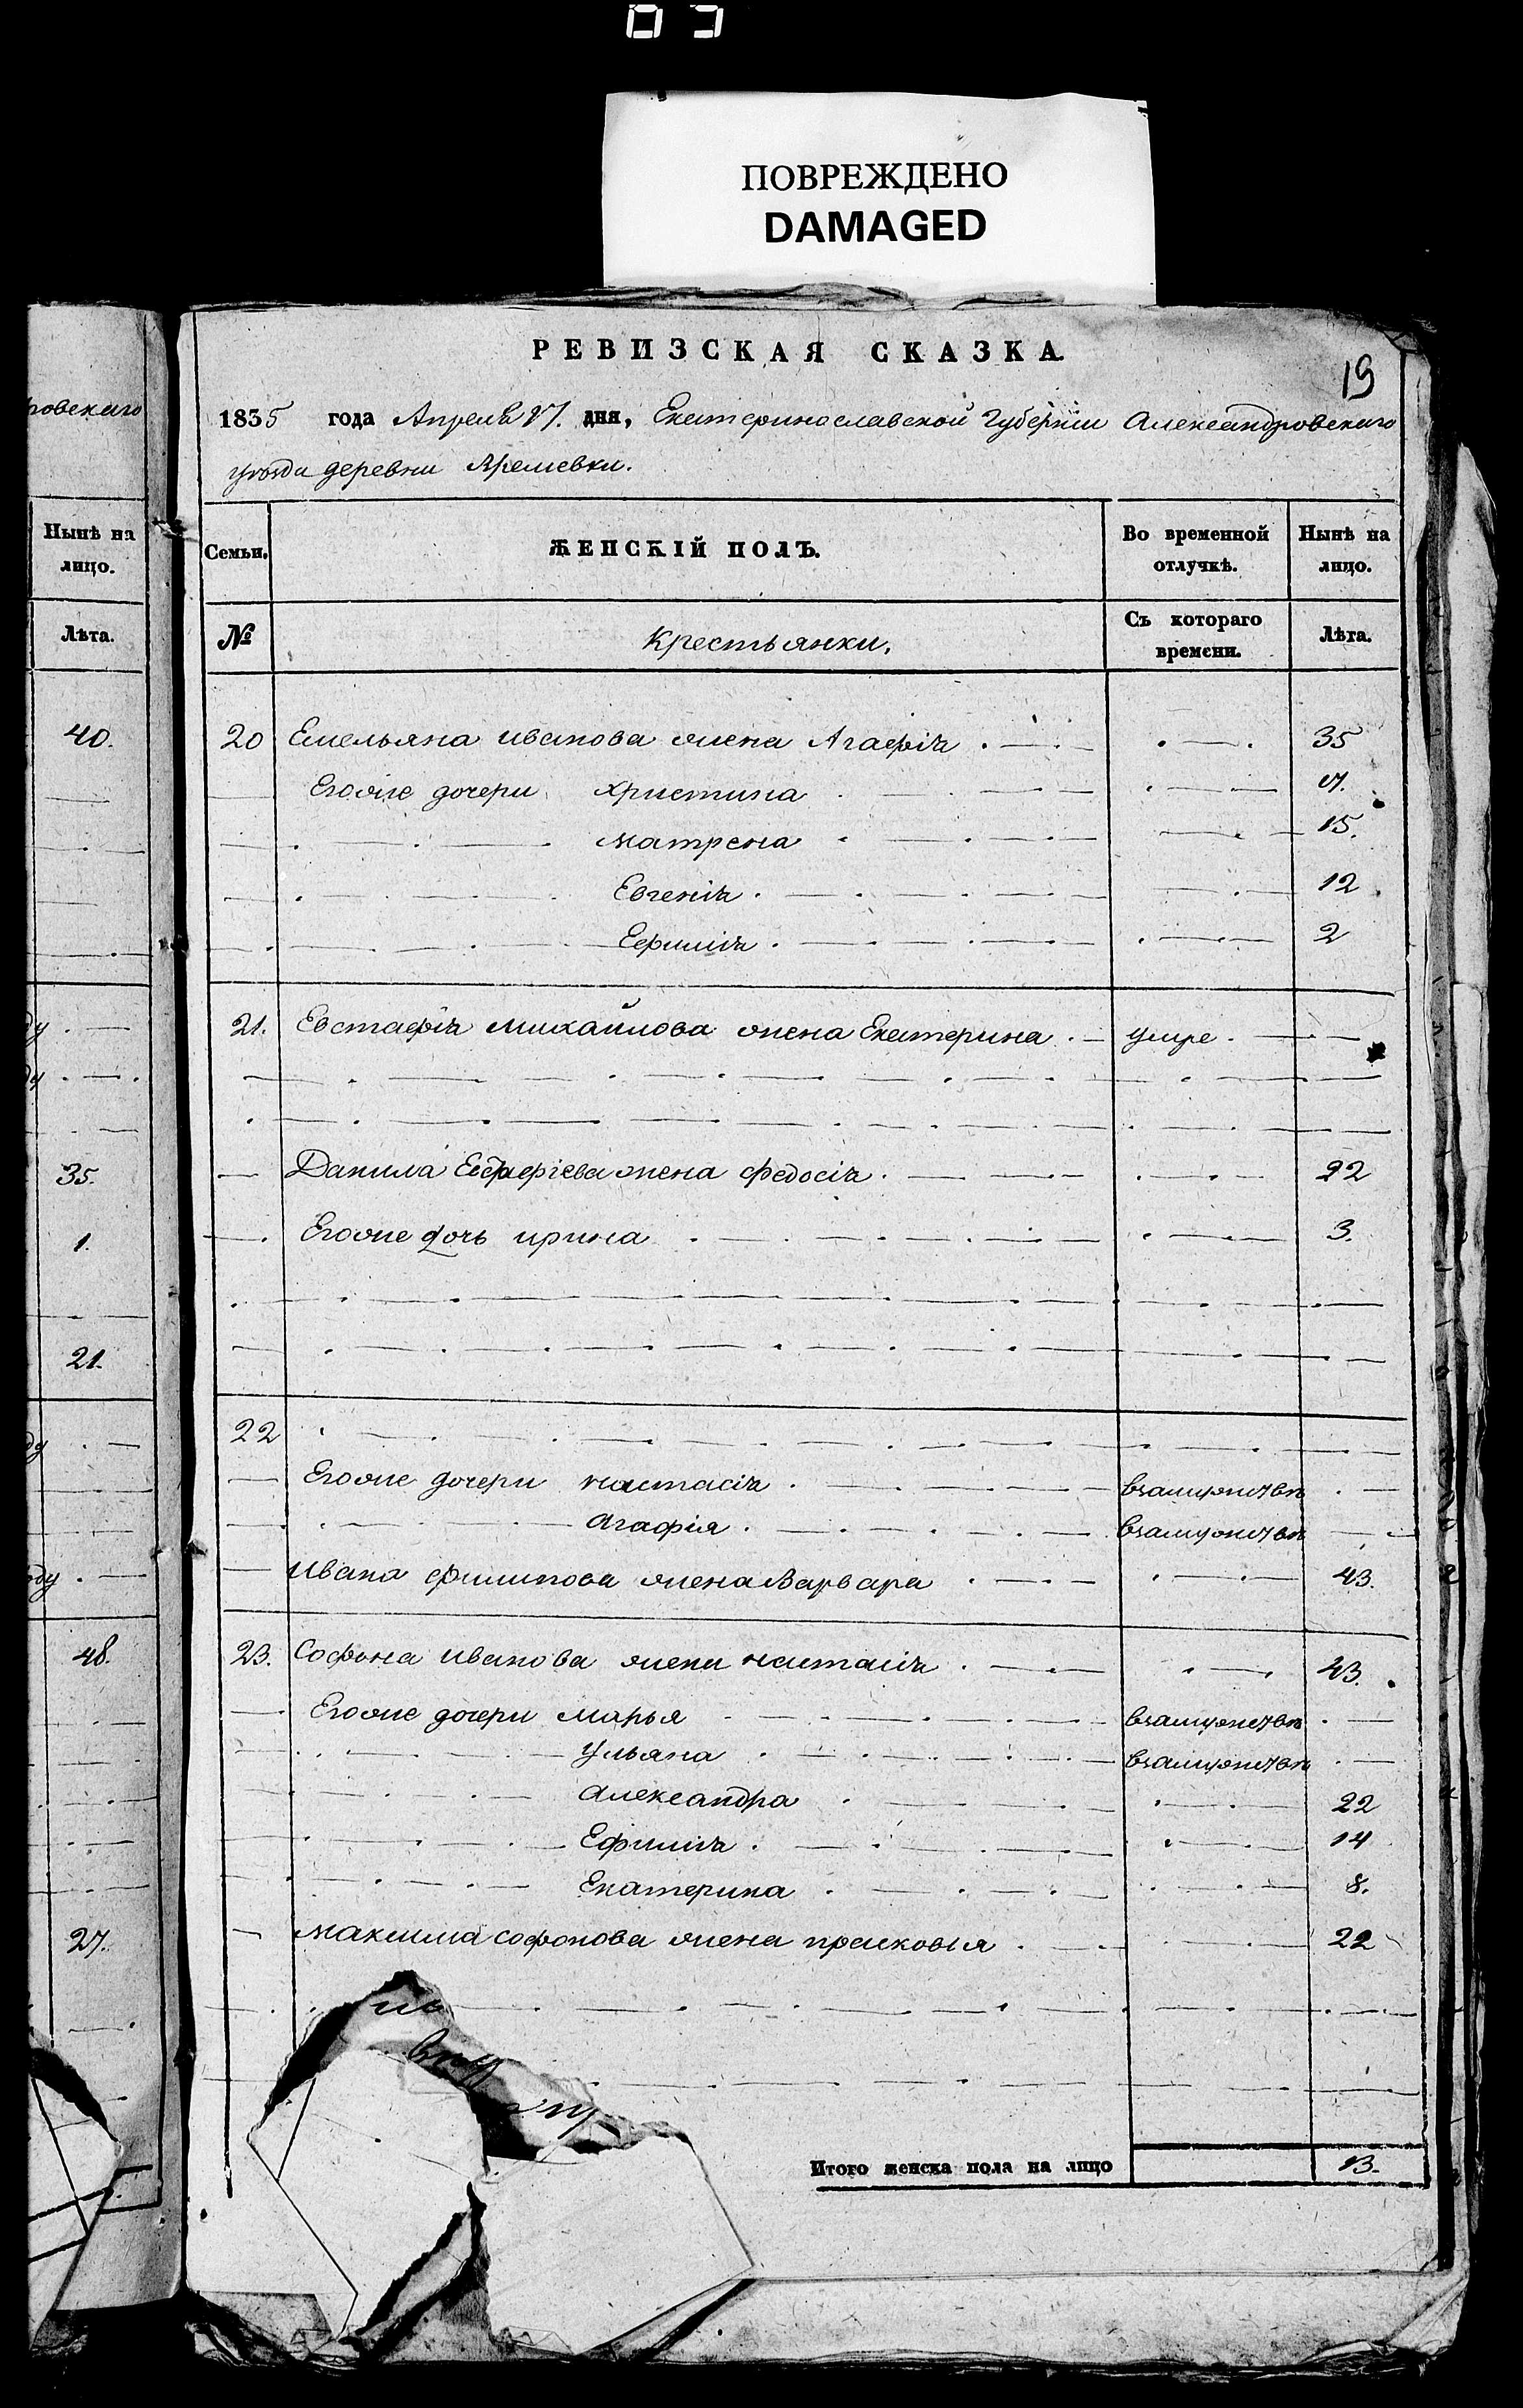 ПОВРЕЖДЕНО
DAMAGED
РЕВИЗСКАЯ СКАЗКА.
19
1835 года Апреля 17. дня, Екатеринославской Губерніи Александровскаго
уѣзда деревни Яремевки.
ровскаго
Нынѣ на лицо.
Лѣта.
40.
35.
1.
21.
48.
27.
Семьи. ЖЕНСКІЙ ПОЛЪ. Во временной отлучкѣ. Нынѣ на лицо.
№ Крестьянки. Съ котораго времени. Лѣта.
20 Емельяна иванова жена Агафія 35
Егоже дочери христина
матрена 15.
Евгенія 12
Ефимія 2
21. Евстафія михайлова жена Екатерина умре
Данила Евстафіева жена федосія 22
Егоже дочь ирина 3.
22
Егоже дочери настасія взамужствѣ
агафія взамужствѣ
ивана филипова жена Варвара 43.
23. Софона иванова жена настасія 43.
Егоже дочери марья взамужствѣ
ульяна взамужствѣ
александра 22
Ефимія 14
Екатерина 8.
максима софонова жена прасковья 22
Итого женска пола на лицо 13.